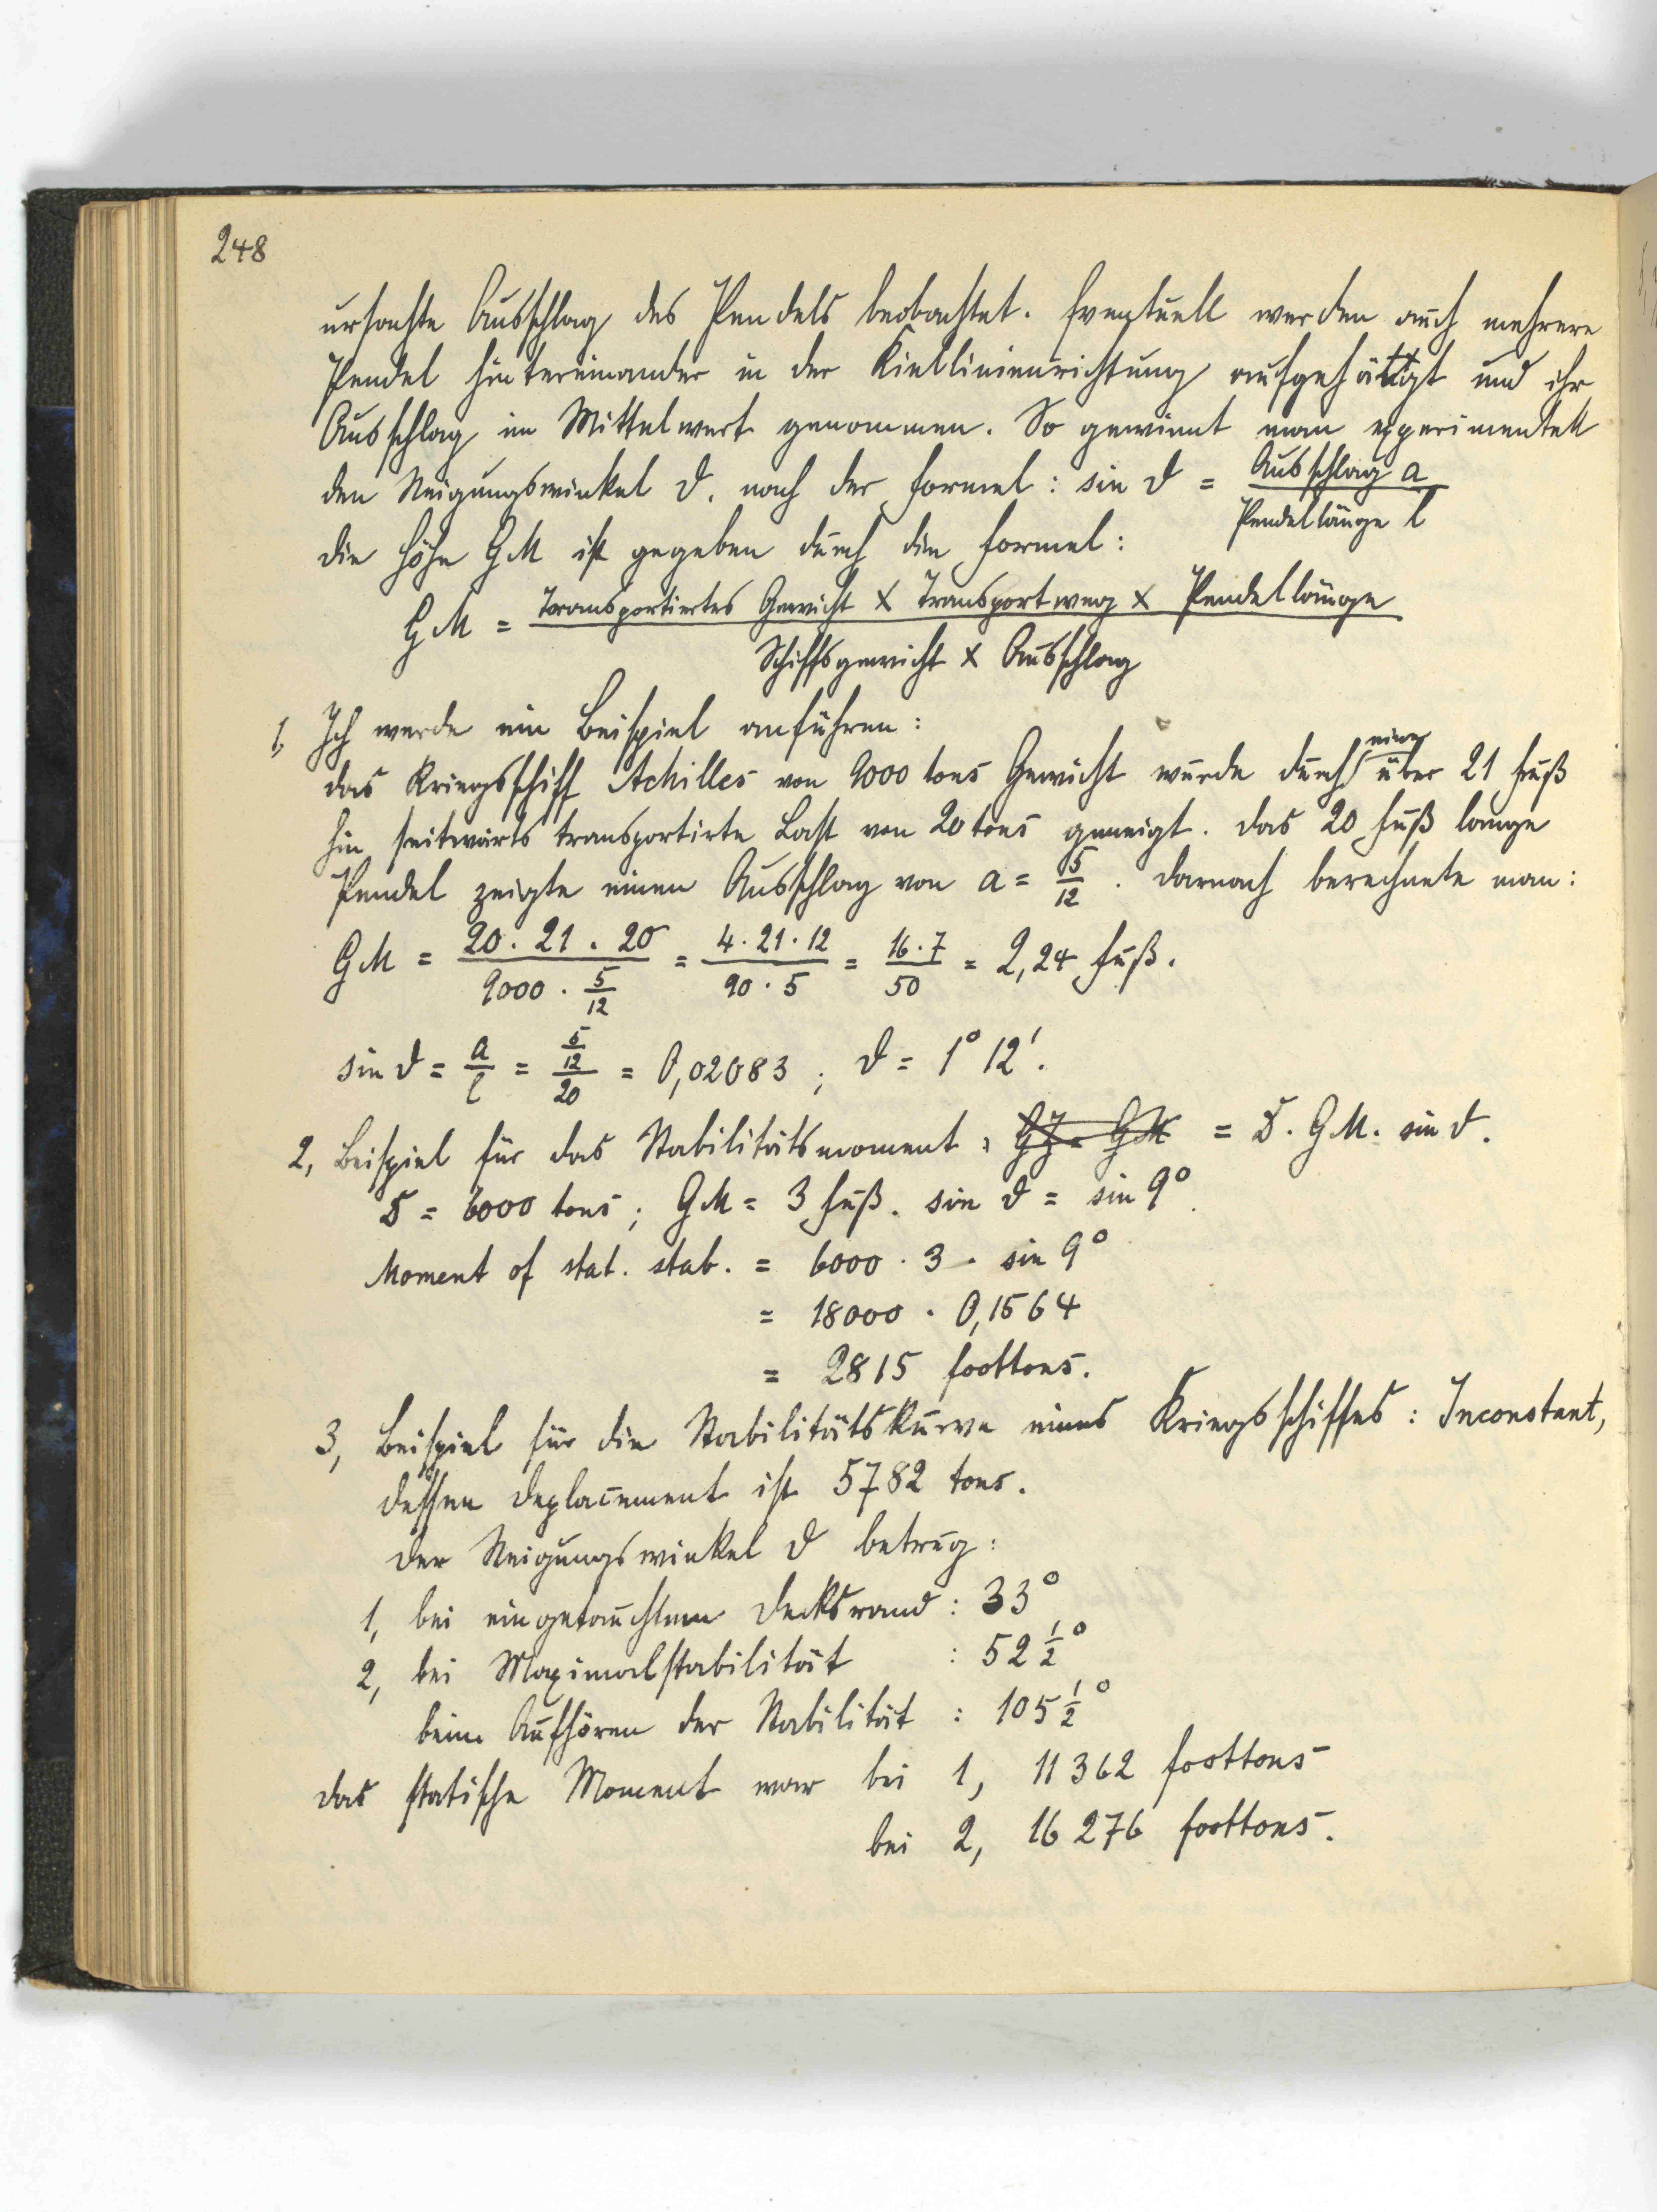 248
ursachte Ausschlag des Pendels beobachtet. Eventuell werden auch mehrere
Pendel hintereinander in der Kiellinienrichtung aufgehängt und ihr
Ausschlag im Mittelwert genommen. So gewinnt man experimentell
den Neigungswinkel ϑ. nach der Formel: sin ϑ = Ausschlag a / Pendellänge l
die Höhe GM ist gegeben durch die Formel:
GM = Transportiertes Gewicht × Transportweg × Pendellänge / Schiffsgewicht × Ausschlag
1, Ich werde ein Beispiel anführen:
das Kriegsschiff Achilles von 9000 tons Gewicht wurde durch eine über 21 Fuß
hin seitwärts transportirte Last von 20 tons geneigt. Das 20 Fuß lange
Pendel zeigte einen Ausschlag von a = 5/12. Darnach berechnete man:
GM = 20 · 21 · 20 / 9000 · 5/12 = 4 · 21 · 12 / 90 · 5 = 16 · 7 / 50 = 2,24 Fuß.
sin ϑ = a/l = 5/12 / 20 = 0,02083; ϑ = 1° 12'.
2, Beispiel für das Stabilitätsmoment : = D. GM. sin ϑ.
D = 6000 tons; GM = 3 Fuß. sin ϑ = sin 9°.
Moment of stat. stab. = 6000 · 3 · sin 9°
= 18000 · 0,1564
= 2815 foottons.
3, Beispiel für die Stabilitätskurve eines Kriegsschiffes: Inconstant,
dessen Deplacement ist 5782 tons.
Der Neigungswinkel ϑ betrug:
1, bei eingetauchtem Decksrand: 33°
2, bei Maximalstabilität : 52 1/2°
beim Aufhören der Stabilität : 105 1/2°
Das statische Moment war bei 1, 11 362 foottons
bei 2, 16 276 foottons.